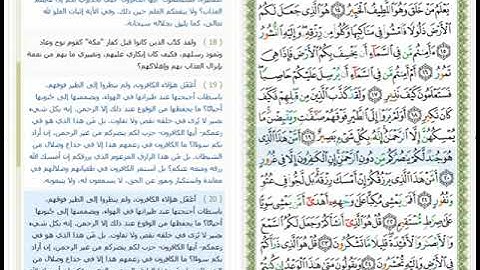 يَعْلَمُ مَنْ خَلَقَ وَهُوَ ٱللَّطِيفُ ٱلْخَبِيرُ ١٤ هُوَ ٱلَّذِى جَعَلَ لَكُمُ
ٱلْأَرْضَ ذَلُولًا فَٱمْشُوا۟ فِى مَنَاكِبِهَا وَكُلُوا۟ مِن رِّزْقِهِۦ وَإِلَيْهِ ٱلنُّشُورُ
١٥ ءَأَمِنتُم مَّن فِى ٱلسَّمَآءِ أَن يَخْسِفَ بِكُمُ ٱلْأَرْضَ فَإِذَا هِىَ
تَمُورُ ١٦ أَمْ أَمِنتُم مَّن فِى ٱلسَّمَآءِ أَن يُرْسِلَ عَلَيْكُمْ حَاصِبًا
فَسَتَعْلَمُونَ كَيْفَ نَذِيرِ ١٧ وَلَقَدْ كَذَّبَ ٱلَّذِينَ مِن قَبْلِهِمْ فَكَيْفَ
كَانَ نَكِيرِ ١٨ أَوَلَمْ يَرَوْا۟ إِلَى ٱلطَّيْرِ فَوْقَهُمْ صَٰٓفَّٰتٍ وَيَقْبِضْنَ مَا
يُمْسِكُهُنَّ إِلَّا ٱلرَّحْمَٰنُ إِنَّهُۥ بِكُلِّ شَىْءٍۭ بَصِيرٌ ١٩ أَمَّنْ هَٰذَا ٱلَّذِى
هُوَ جُندٌ لَّكُمْ يَنصُرُكُم مِّن دُونِ ٱلرَّحْمَٰنِ إِنِ ٱلْكَٰفِرُونَ إِلَّا فِى غُرُورٍ
٢٠ أَمَّنْ هَٰذَا ٱلَّذِى يَرْزُقُكُمْ إِنْ أَمْسَكَ رِزْقَهُۥ بَل لَّجُّوا۟ فِى عُتُوٍّ
وَنُفُورٍ ٢١ أَفَمَن يَمْشِى مُكِبًّا عَلَىٰ وَجْهِهِۦٓ أَهْدَىٰٓ أَمَّن يَمْشِى سَوِيًّا
عَلَىٰ صِرَٰطٍ مُّسْتَقِيمٍ ٢٢ قُلْ هُوَ ٱلَّذِىٓ أَنشَأَكُمْ وَجَعَلَ لَكُمُ ٱلسَّمْعَ
وَٱلْأَبْصَٰرَ وَٱلْأَفْـِٔدَةَ قَلِيلًا مَّا تَشْكُرُونَ ٢٣ قُلْ هُوَ ٱلَّذِى ذَرَأَكُمْ
فِى ٱلْأَرْضِ وَإِلَيْهِ تُحْشَرُونَ ٢٤ وَيَقُولُونَ مَتَىٰ هَٰذَا ٱلْوَعْدُ إِن كُنتُمْ
العذاب؟ ولا ينفعكم العلم حين ذلك. وفي الآية إثبات العلو لله
تعالى، كما يليق بجلاله سبحانه.
( 18 ) ولقد كذَّب الذين كانوا قبل كفار "مكة" كقوم نوح وعاد
وثمود رسلهم، فكيف كان إنكاري عليهم، وتغييري ما بهم من نعمة
بإنزال العذاب بهم وإهلاكهم؟
( 19 ) أغَفَل هؤلاء الكافرون، ولم ينظروا إلى الطير فوقهم،
باسطات أجنحتها عند طيرانها في الهواء، ويضممنها إلى جُنوبها
أحيانًا؟ ما يحفظها من الوقوع عند ذلك إلا الرحمن. إنه بكل شيء
بصير لا يُرى في خلقه نقص ولا تفاوت. بل مَن هذا الذي هو في
زعمكم- أيها الكافرون- حزب لكم ينصركم من غير الرحمن، إن أراد
بكم سوءًا؟ ما الكافرون في زعمهم هذا إلا في خداع وضلال من
الشيطان. بل مَن هذا الرازق المزعوم الذي يرزقكم إن أمسك الله
رزقه ومنعه عنكم؟ بل استمر الكافرون في طغيانهم وضلالهم في
معاندة واستكبار ونفور عن الحق، لا يسمعون له، ولا يتبعونه.
( 20 ) أغَفَل هؤلاء الكافرون، ولم ينظروا إلى الطير فوقهم،
باسطات أجنحتها عند طيرانها في الهواء، ويضممنها إلى جُنوبها
أحيانًا؟ ما يحفظها من الوقوع عند ذلك إلا الرحمن. إنه بكل شيء
بصير لا يُرى في خلقه نقص ولا تفاوت. بل مَن هذا الذي هو في
زعمكم- أيها الكافرون- حزب لكم ينصركم من غير الرحمن، إن أراد
بكم سوءًا؟ ما الكافرون في زعمهم هذا إلا في خداع وضلال من